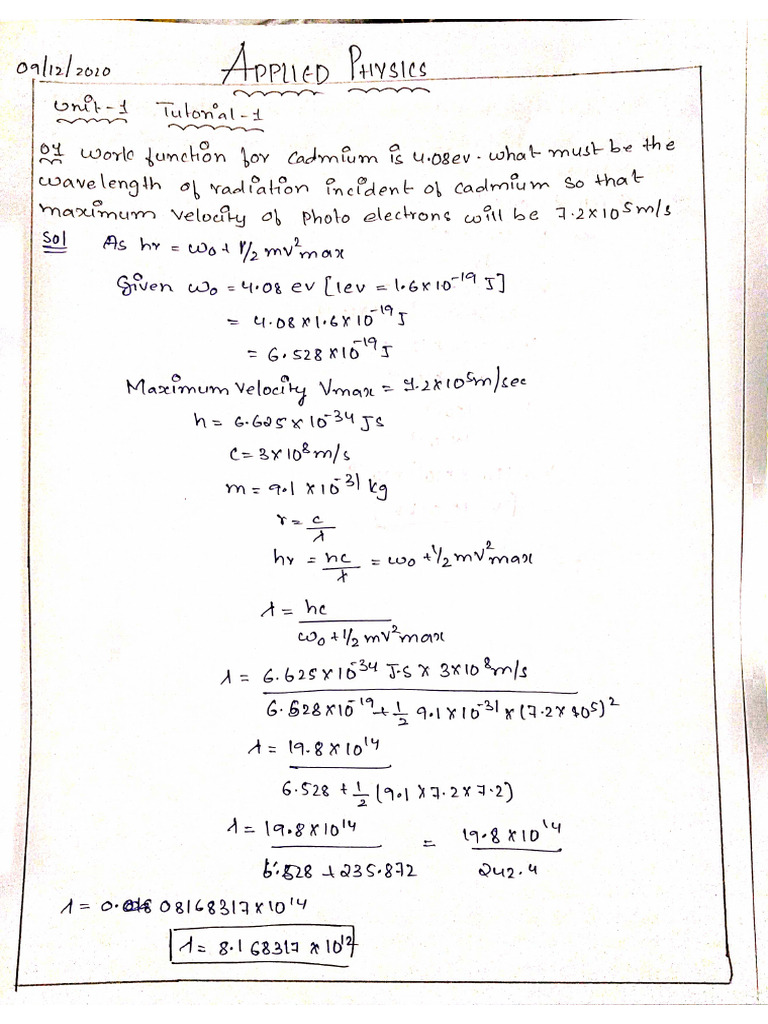 09/12/2020
APPLIED PHYSICS
Unit-1 Tutorial-1
01 Work function for cadmium is 4.08ev. what must be the
wavelength of radiation incident of cadmium so that
maximum velocity of photo electrons will be 7.2×10⁵m/s
Sol As hr = w₀ + 1/2 mv²max
Given w₀ = 4.08 ev [1ev = 1.6×10⁻¹⁹ J]
= 4.08×1.6×10⁻¹⁹J
= 6.528×10⁻¹⁹J
Maximum velocity Vmax = 7.2×10⁵m/sec
h = 6.625×10⁻³⁴ Js
c = 3×10⁸ m/s
m = 9.1×10⁻³¹ kg
r = c/λ
hr = hc/λ = w₀ + 1/2 mv²max
λ = hc
w₀ + 1/2 mv²max
λ = 6.625×10⁻³⁴ J.s × 3×10⁸m/s
6.528×10⁻¹⁹ + 1/2 9.1×10⁻³¹ × (7.2×10⁵)²
λ = 19.8×10¹⁴
6.528 + 1/2 (9.1×7.2×7.2)
λ = 19.8×10¹⁴ = 19.8×10¹⁴
6.528 + 235.872 242.4
λ = 0.08168317×10¹⁴
λ = 8.168317×10¹²